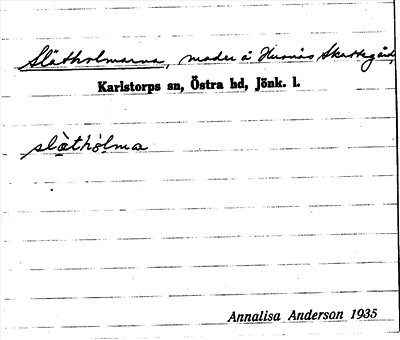 Slätholmarna, mader å Skattegård,
Karlstorps sn, Östra hd, Jönk. l.
slàthòlma
Annalisa Anderson 1935